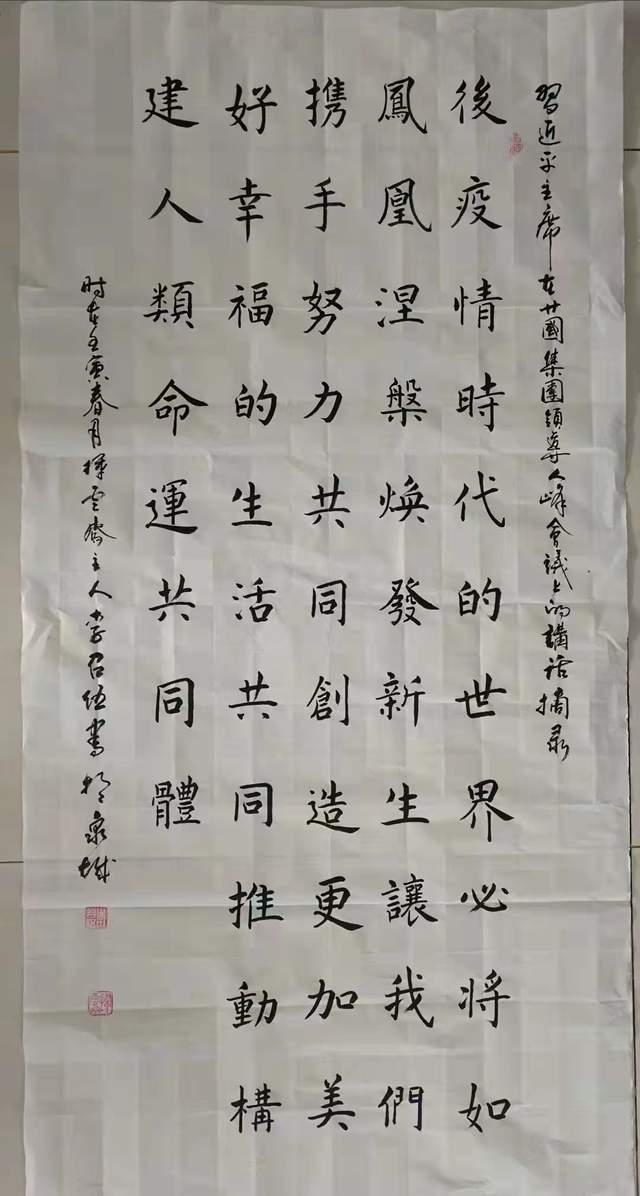 習近平主席在廿國集團領導人峰會議上的講話摘录
後疫情時代的世界必將如
鳳凰涅槃焕發新生讓我們
携手努力共同創造更加美
好幸福的生活共同推動構
建人類命運共同體
时在壬寅春月择雲齋主人李召伍書於泉城